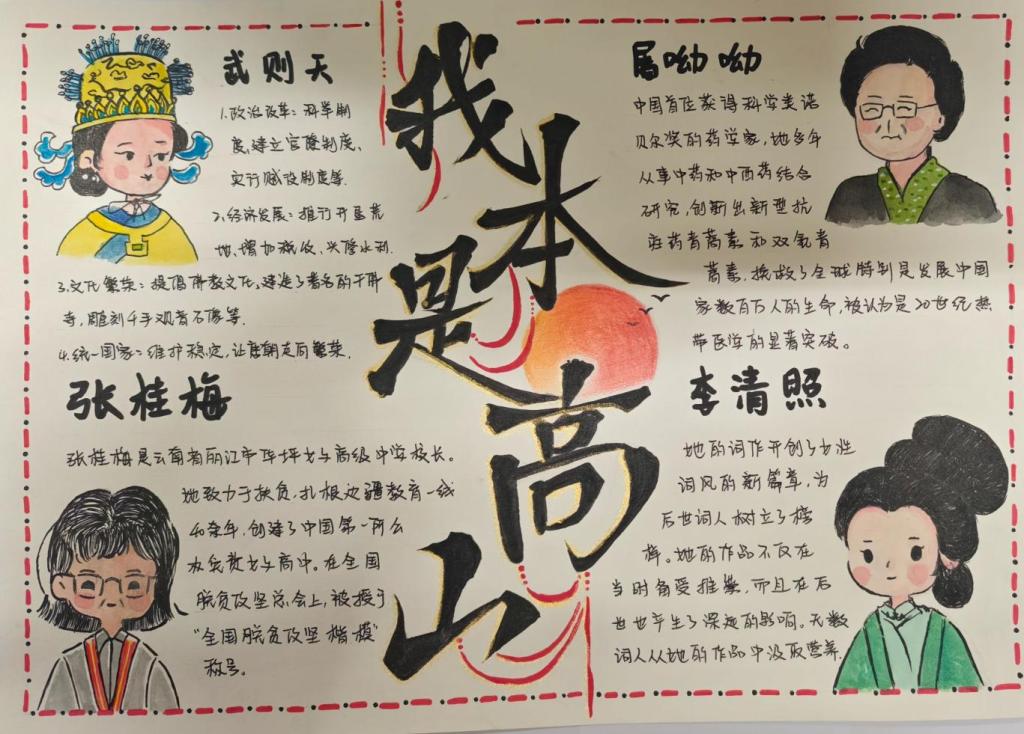 武则天
1.政治改革：科举制
度,建立官僚制度、
实行赋役制度等.
2.经济发展：推行开垦荒
地、增加税收、兴修水利.
3.文化繁荣：提倡佛教文化,建造了著名的千佛
寺,雕刻千手观音石像等.
4.统一国家：维护稳定,让唐朝走向繁荣.
张桂梅
张桂梅是云南省丽江市华坪女子高级中学校长。
她致力于扶贫,扎根边疆教育一线
40余年,创建了中国第一所公
办免费女子高中。在全国
脱贫攻坚总会上,被授予
“全国脱贫攻坚楷模”
称号。
我本是高山
屠呦呦
中国首位获得科学类诺
贝尔奖的药学家,她多年
从事中药和中西药结合
研究,创新出新型抗
疟药青蒿素和双氢青
蒿素,挽救了全球特别是发展中国
家数百万人的生命,被认为是20世纪热
带医学的显著突破。
李清照
她的词作开创了女性
词风的新篇章,为
后世词人树立了榜
样。她的作品不仅在
当时备受推崇,而且在后
世也产生了深远的影响。无数
词人从她的作品中汲取营养.